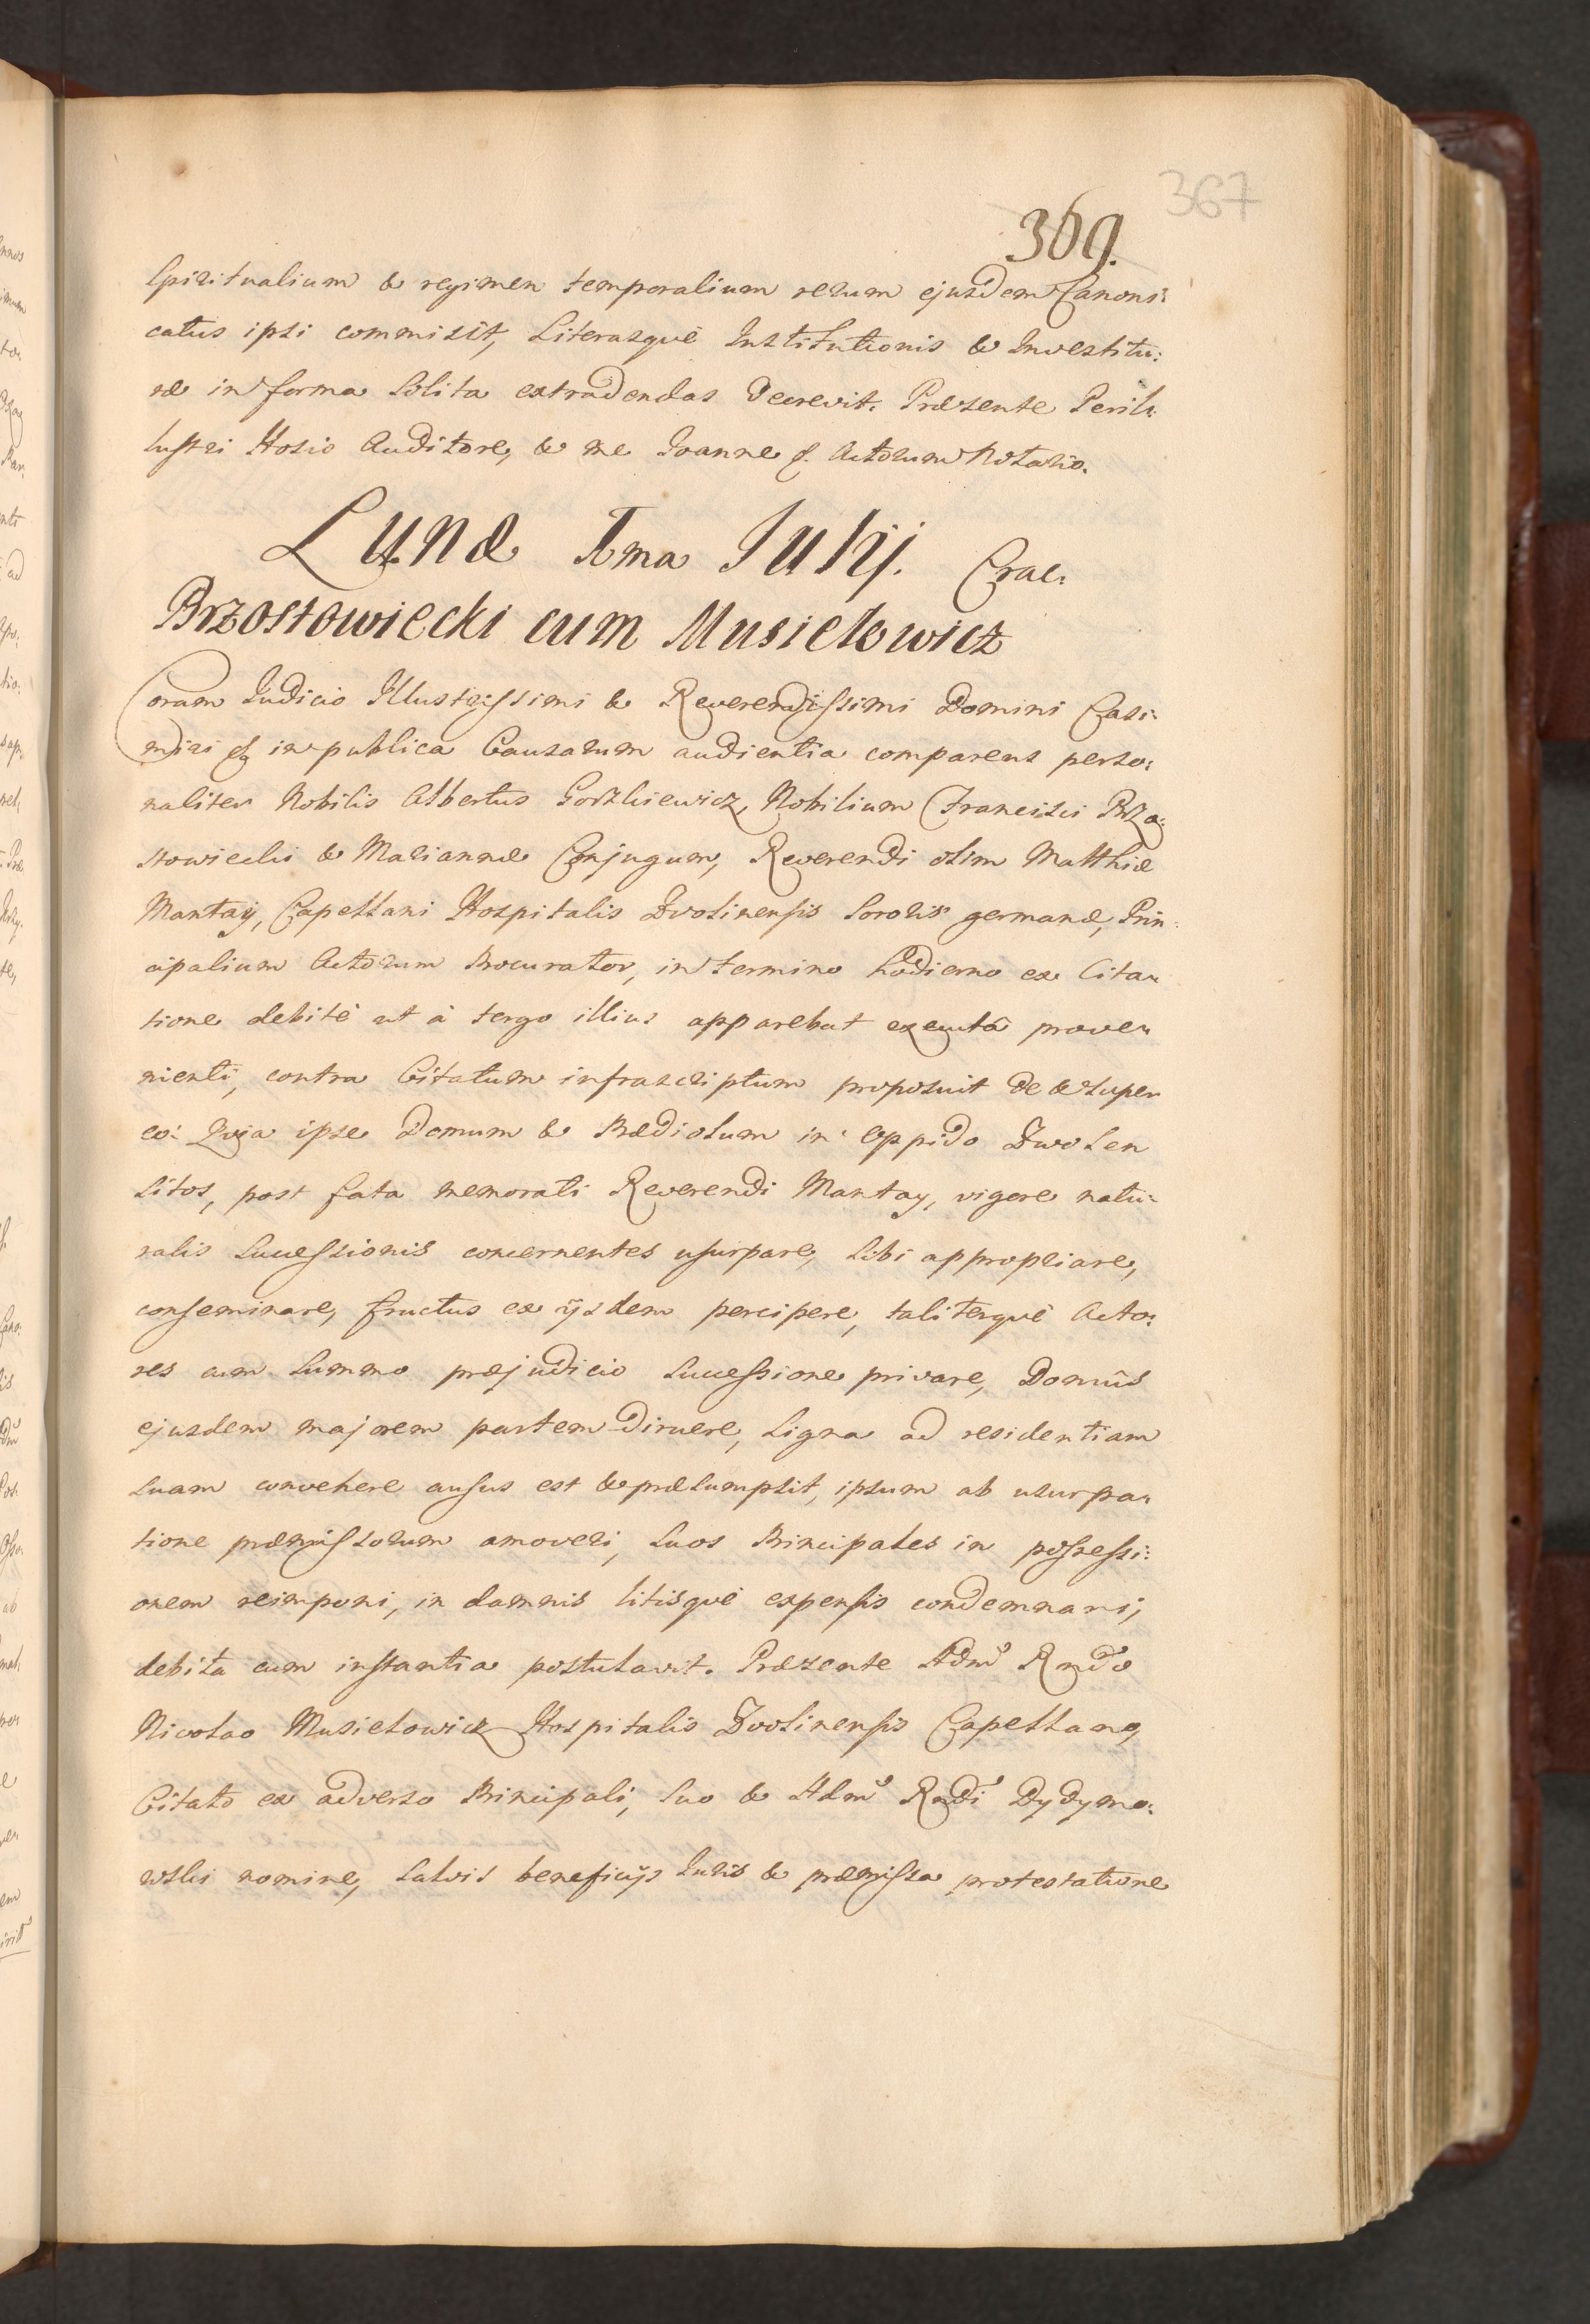 367
369.
Spiritualium & regimen temporalium rerum ejusdem Canoni:
catus ipsi commisit, Literasquè Institutionis & Investitu:
ræ in forma solita extradendas decrevit. Præsente Peril:
lustri Hosio Auditore, & me Joanne q. Actorum Notario.
Lunæ Ima Julij. Crac:
Brzostowiecki cum Musielowicz
Coram Judicio Illustrissimi & Reverendissimi Domini Casi:
miri &c in publica Causarum audientia comparens perso:
naliter Nobilis Albertus Gorzkiewicz, Nobilium Francisci Brzo:
stowiecki & Mariannæ Conjugum, Reverendi olim Matthiæ
Mantaÿ, Capellani Hospitalis Zvolinensis Sororis germanæ, Prin:
cipalium Actorum Procurator, in termino hodierno ex Cita:
tione debitè ut à tergo illius apparebat executâ prove:
nienti, contra Citatum infrascriptum proposuit de & super
eo: Quia ipse Domum & Prædiolum in oppido Zwolen
sitos, post fata memorati Reverendi Mantay, vigore natu:
ralis successionis concernentes usurpare, sibi appropriare,
conseminare, fructus ex ijsdem percipere, taliterquè Acto:
res cum summo præjudicio successione privare, Domûs
ejusdem majorem partem diruere, ligna ad residentiam
suam convehere ausus est & præsumpsit, ipsum ab usurpa:
tione præmissorum amoveri, suos Principales in possessi:
onem reimponi, in damnis litisquè expensis condemnari,
debita cum instantia postulavit. Præsente Admo Rndo
Nicolao Musielowicz Hospitalis Zvolinensis Capellano,
Citato ex adverso Principali, suo & Admo Rndi Dydymo:
wski nomine, salvis beneficijs Juris & præmissa protestatione